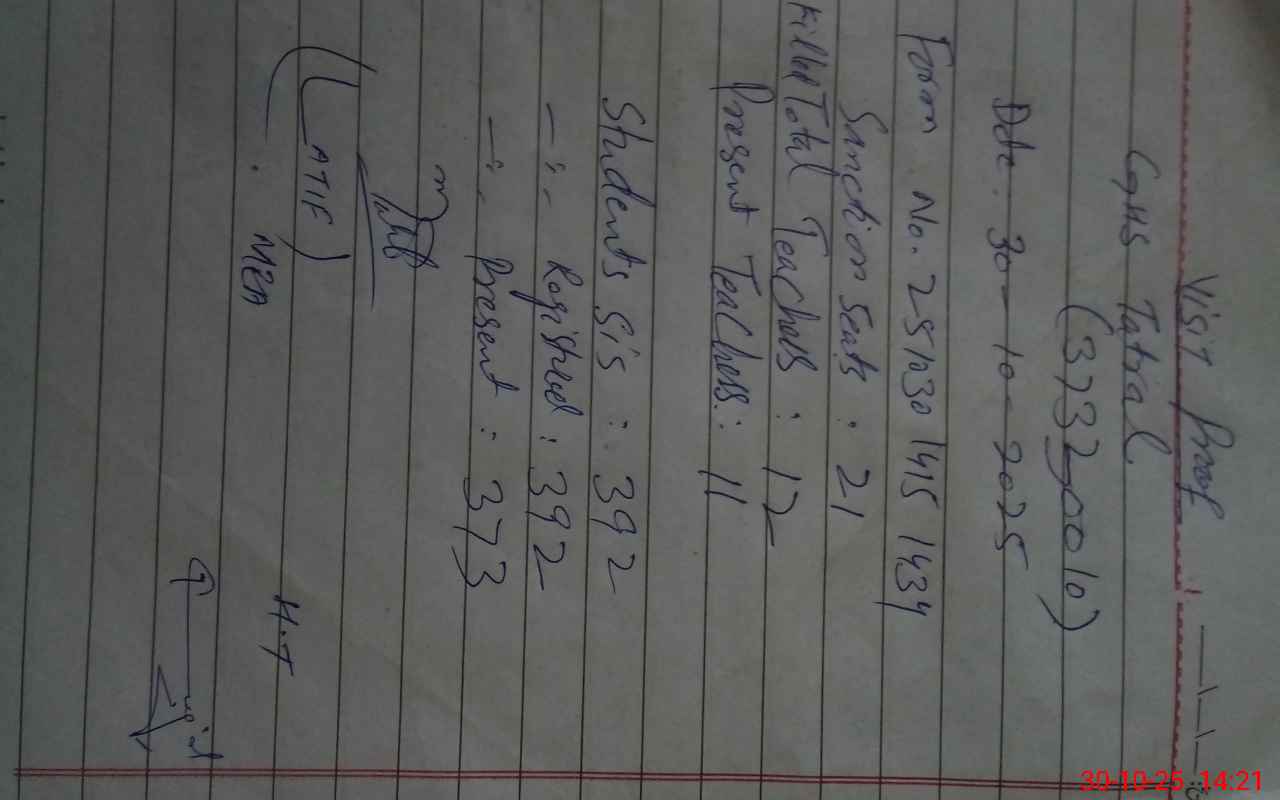 Visit Proof
GHS Tatral
(37323010)
Date. 30-10-2025
Form No. 251030 1415 1434
Sanction Seats: 21
killed Total Teachers: 12
Present Teachers: 11
Students Sis: 392
-"- Registred: 392
-"- Present: 373
(LATIF)
MEA
H.T
30-10-25 14:21